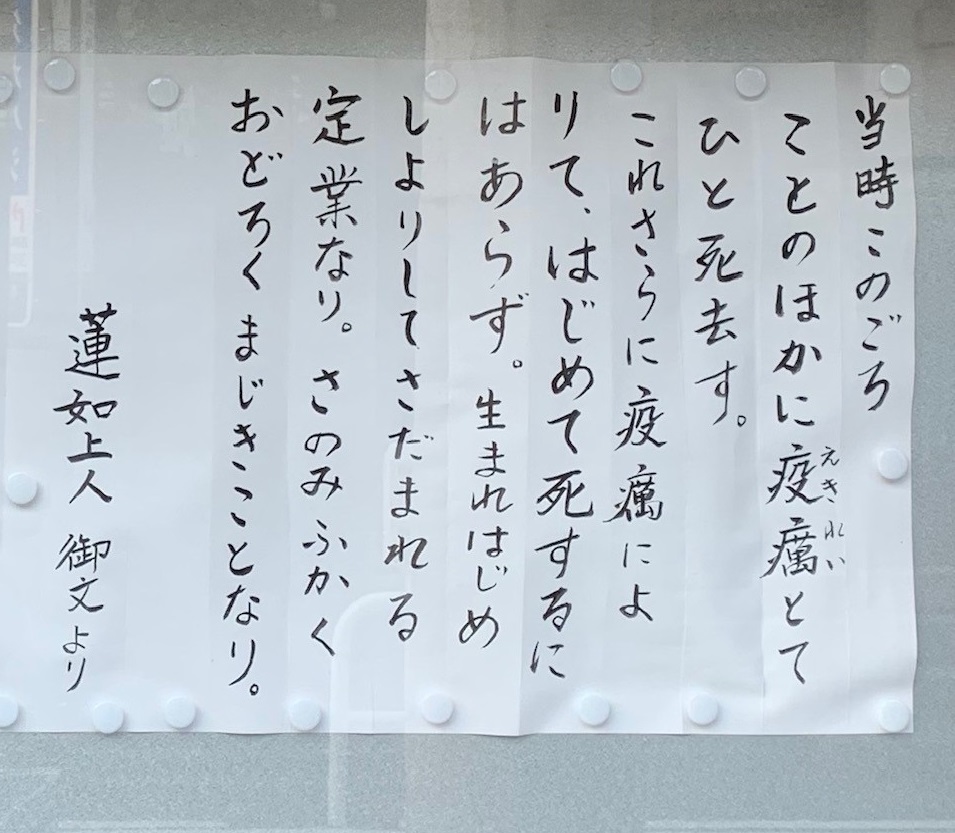 当時このごろ
ことのほかに疫癘とて
えきれい
ひと死去す。
これさらに疫癘によ
りて、はじめて死するに
はあらず。生まれはじめ
しよりしてさだまれる
定業なり。さのみふかく
おどろくまじきことなり。
蓮如上人 御文より